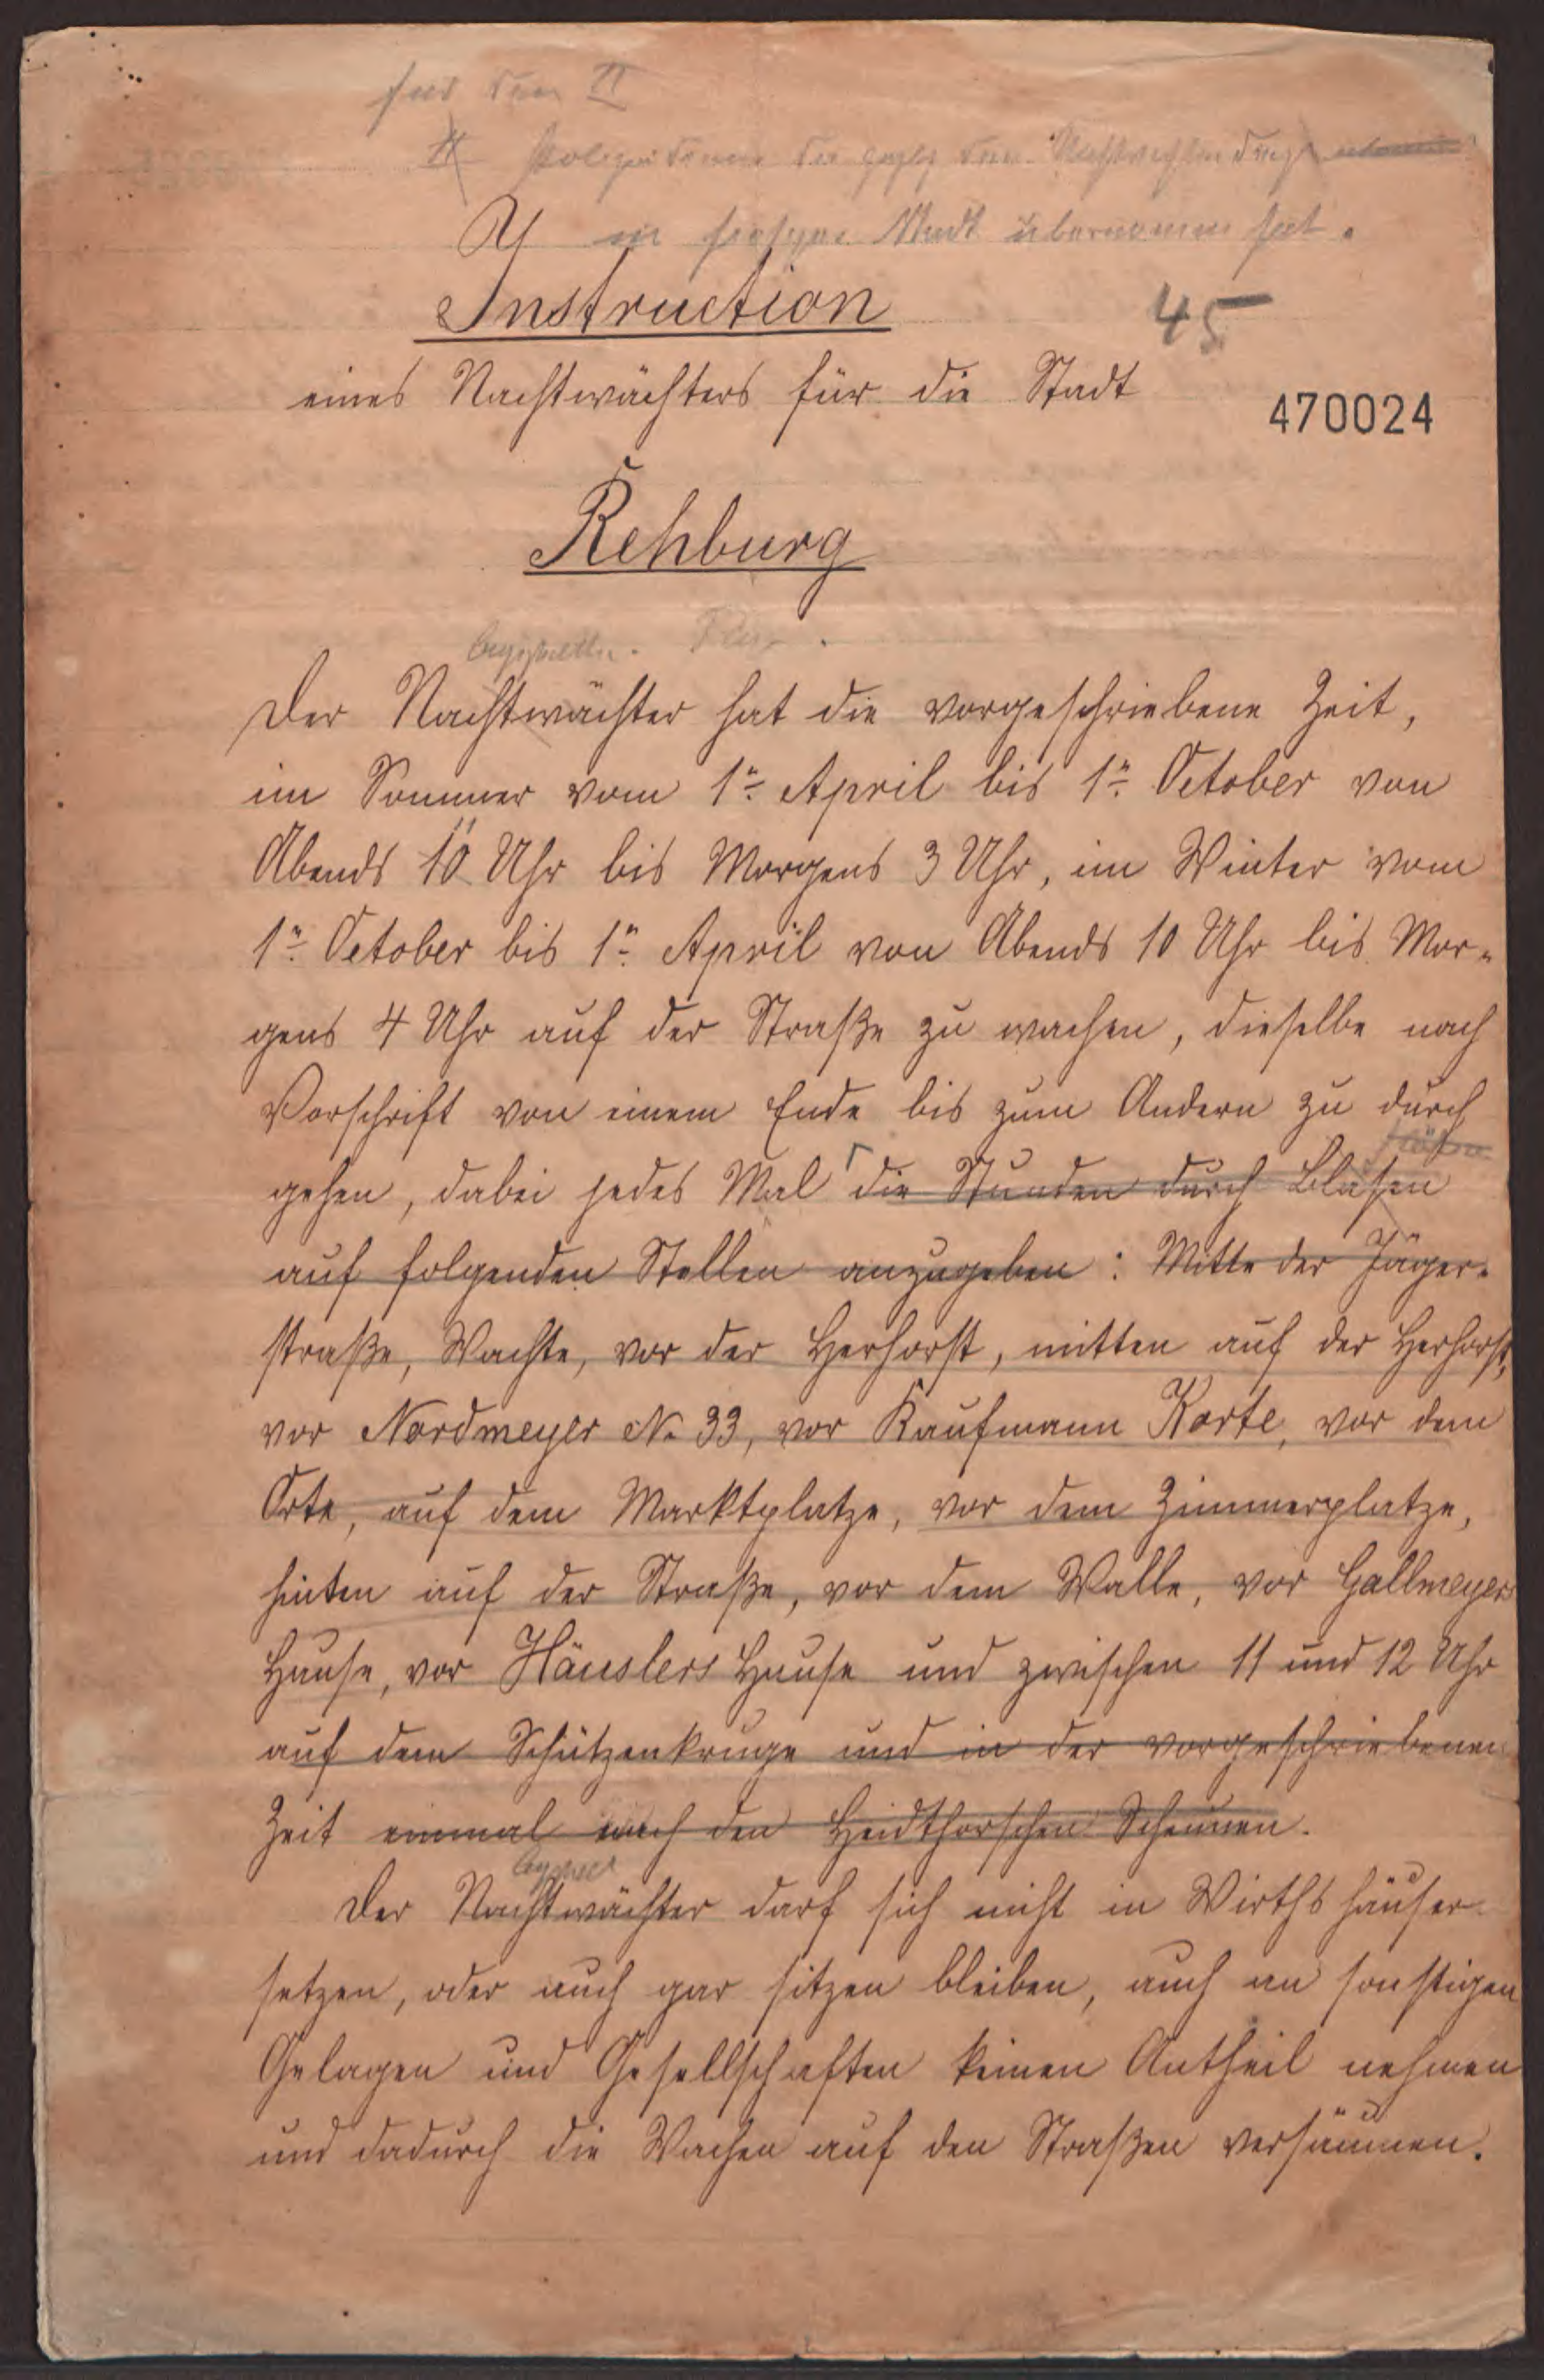 für den II
in hiesiger Stadt übernommen hat.
Instruction
45
eines Nachtwächters für die Stadt
470024
Rehburg
Der Nachtwächter hat die vorgeschriebene Zeit,
im Sommer vom 1n. April bis 1n. October von
11
Abends 10 Uhr bis Morgens 3 Uhr, im Winter vom
1n. October bis 1n. April von Abends 10 Uhr bis Mor-
gens 4 Uhr auf der Straße zu wachen, dieselbe nach
Vorschrift von einem Ende bis zum Andern zu durch
gehen, dabei jedes Mal die Stunden durch Blasen
auf folgenden Stellen anzugeben: Mitte der Jäger-
straße, Wachte, vor der Herhorst, mitten auf der Herhorst,
vor Nordmeyer No 33, vor Kaufmann Korte, vor dem
Orte, auf dem Marktplatze, vor dem Zimmerplatze,
hinten auf der Straße, vor dem Walle, vor Gallmeyers
Hause, vor Häuslers Hause und zwischen 11 und 12 Uhr
auf dem Schützenkruge und in der vorgeschriebenen
Zeit einmal nach den Heidthorschen Scheunen.
Der Nachtwächter darf sich nicht in Wirthshäuser
setzen, oder auch gar sitzen bleiben, auch an sonstigen
Gelagen und Gesellschaften keinen Antheil nehmen
und dadurch die Wachen auf den Straßen versäumen.